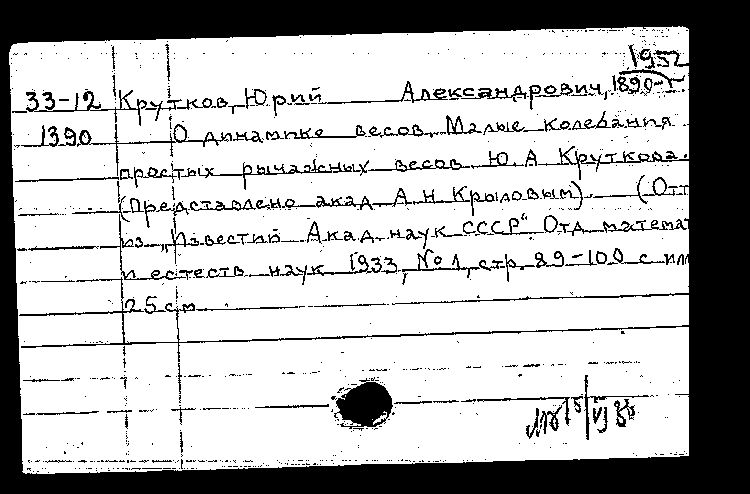 1952
33-12 Крутков, Юрий Александрович, 1890-
1390 О динамике весов. Малые колебания
простых рычажных весов Ю. А Круткова.
(Представлено акад. А. Н. Крыловым). (Отт
из „Известий Акад. наук СССР“ Отд. математ
и естеств. наук 1933, №1, стр. 89-100 с ил
25 см.